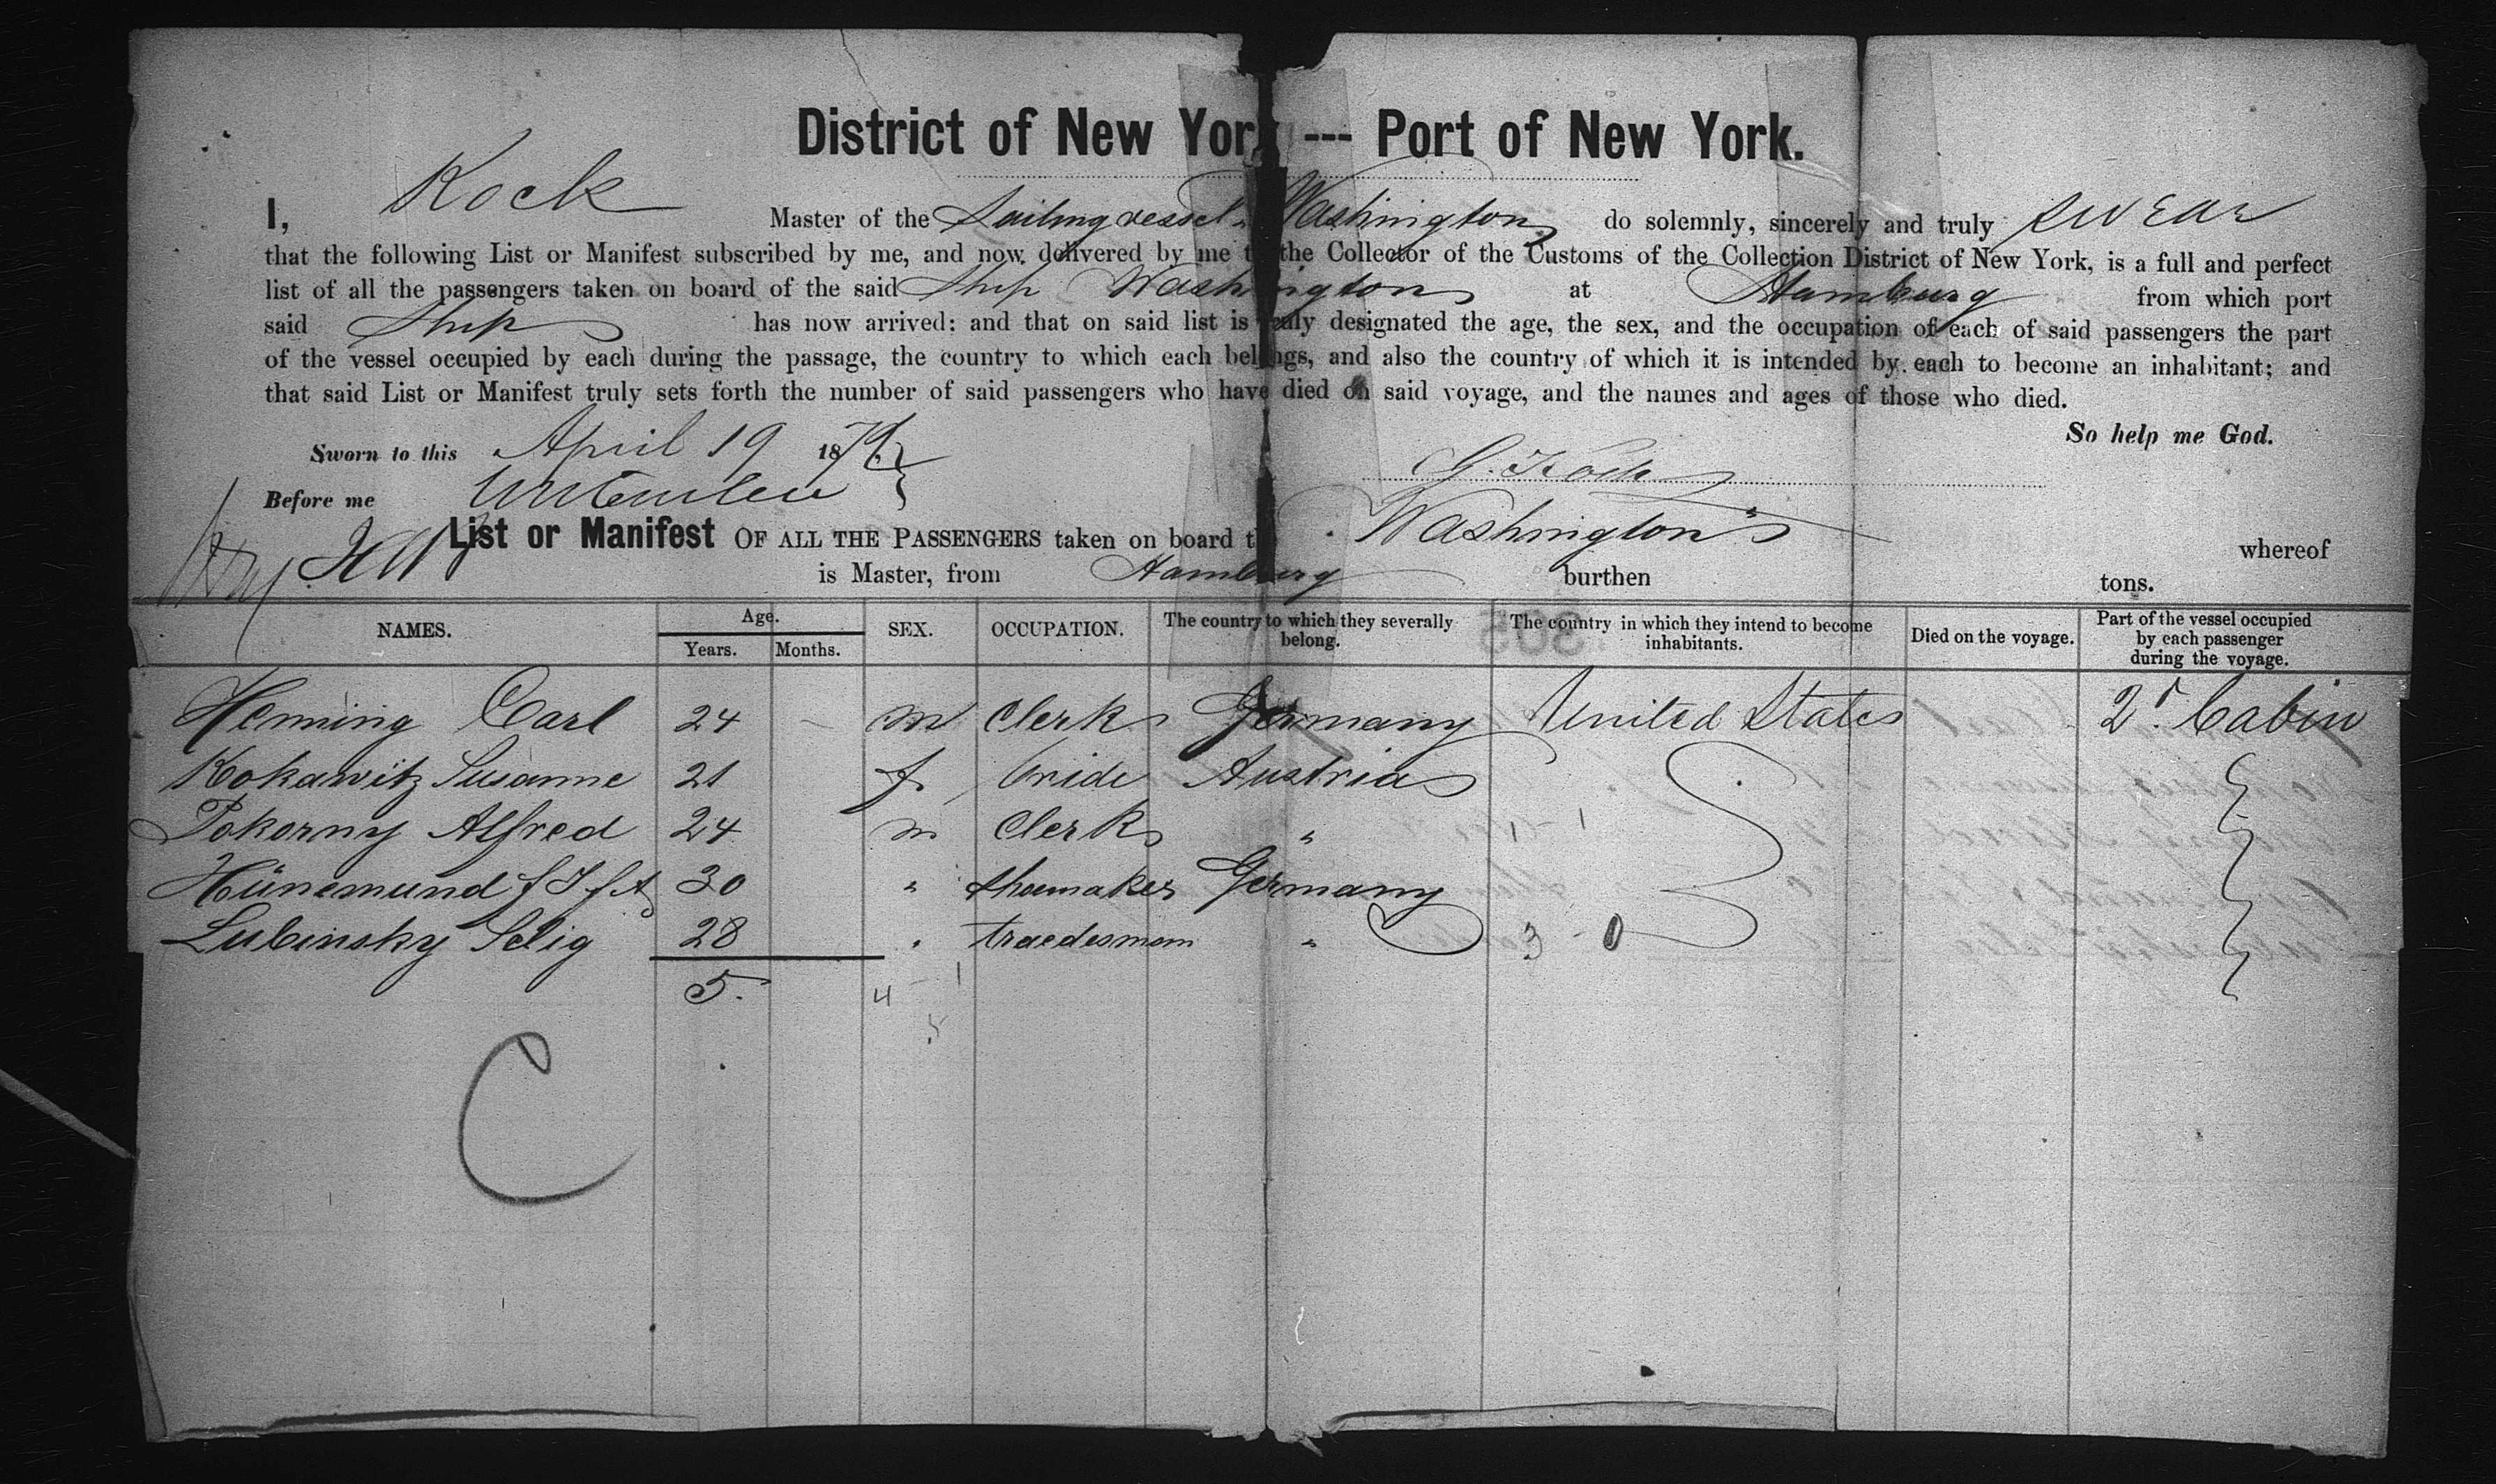 District of New York --- Port of New York.
I, Kock Master of the Sailing vessel Washington do solemnly, sincerely and truly swear
that the following List or Manifest subscribed by me, and now delivered by me to the Collector of the Customs of the Collection District of New York, is a full and perfect
list of all the passengers taken on board of the said Ship Washington at Hamburg from which port
said Ship has now arrived: and that on said list is truly designated the age, the sex, and the occupation of each of said passengers the part
of the vessel occupied by each during the passage, the country to which each belongs, and also the country of which it is intended by each to become an inhabitant; and
that said List or Manifest truly sets forth the number of said passengers who have died on said voyage, and the names and ages of those who died.
So help me God.
Sworn to this April 19 1879
G. Kock
Before me
List or Manifest OF ALL THE PASSENGERS taken on board the Washington whereof
is Master, from Hamburg burthen tons.
NAMES. Age. Years. Months. SEX. OCCUPATION. The country to which they severally belong. The country in which they intend to become inhabitants. Died on the voyage. Part of the vessel occupied by each passenger during the voyage.
Henning Carl 24 — m Clerk Germany United States 2d. Cabin
Kokawitz Susanne 21 f bride Austria
Pokorny Alfred 24 m Clerk " 1 - 1
Hünemund J J f A 30 " shoemaker Germany
Lubinsky Selig 28 " traedesmam " 3 - 0
5. 4 - 1
5
C
305